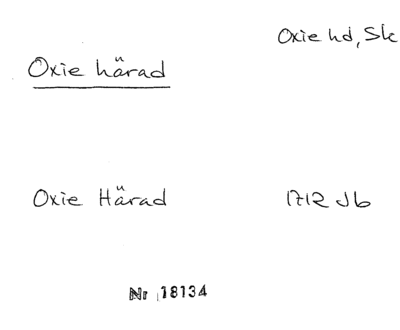 Oxie hd, Sk
Oxie härad
Oxie Härad 1712 Jb
Nr 18134